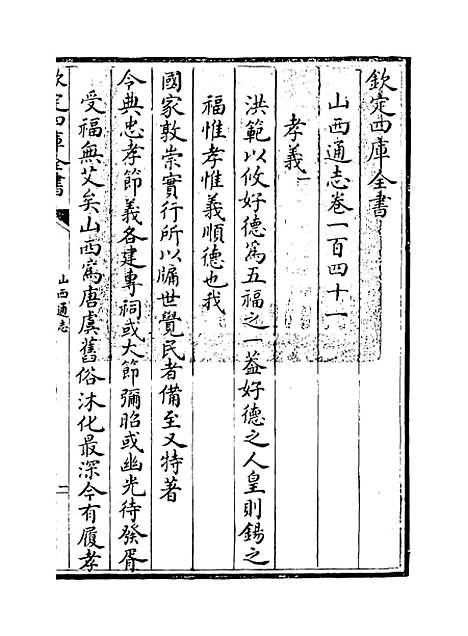 欽定四庫全書
山西通志卷一百四十一
孝義一
洪範以攸好德為五福之一葢好德之人皇則錫之
福惟孝惟義順德也我
國家敦崇實行所以牖世覺民者備至又特著
令典忠孝節義各建專祠或大節彌昭或幽光待發胥
受福無艾矣山西為唐虞舊俗沐化最深今有履孝
欽定四庫全書
山西通志